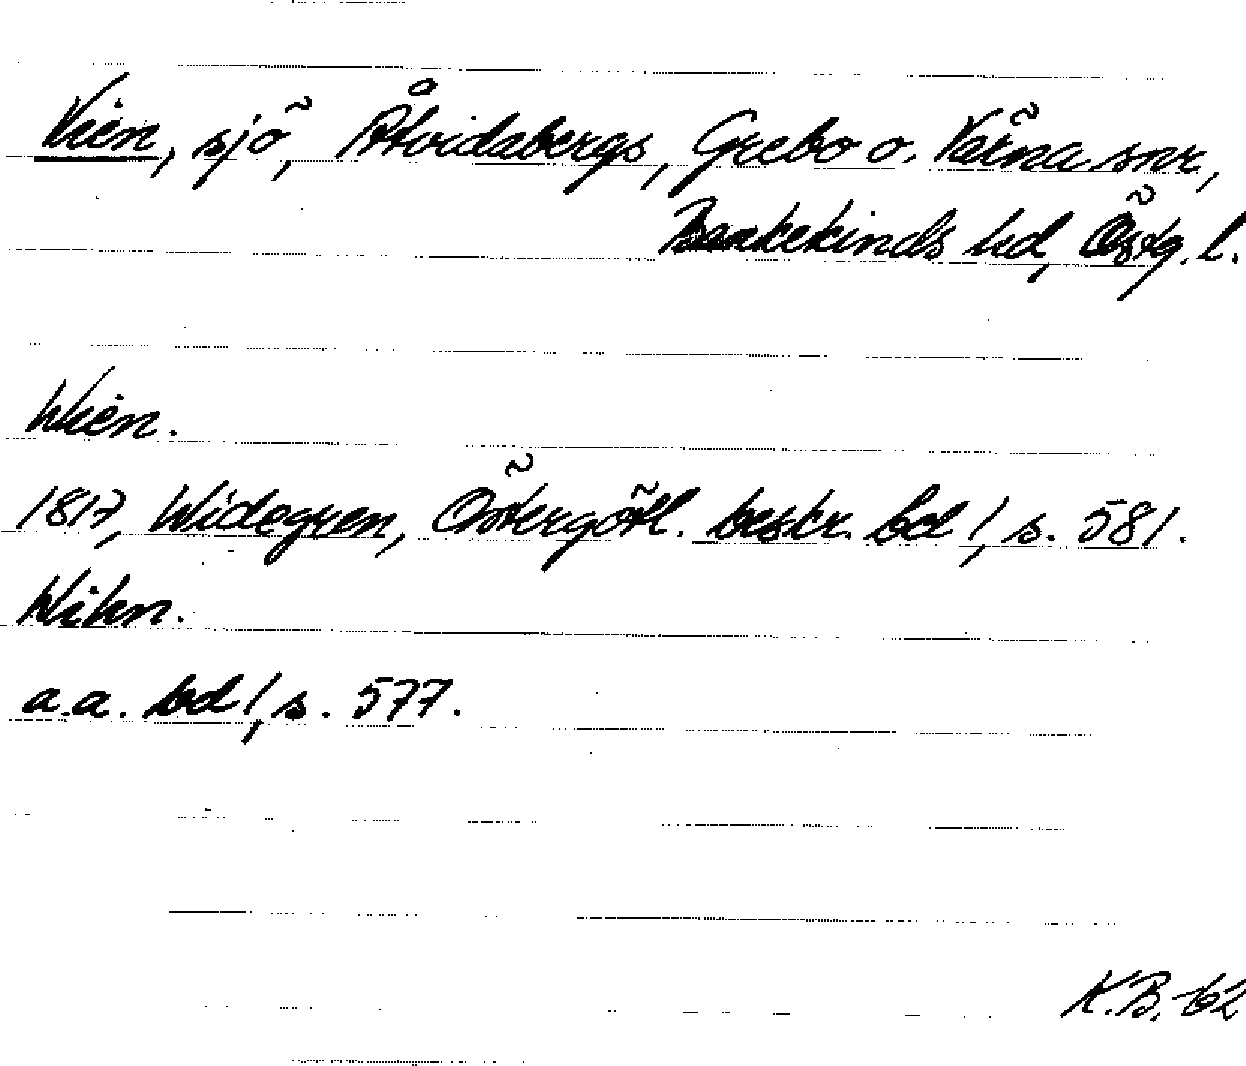 Vien, sjö, Åtvidabergs, Grebo o. Värna snr,
Bankekinds hd, Östg. l.
Wien.
1817, Widegren, Östergötl. beskr. bd 1, s. 581.
Wihn.
a.a. bd 1, s. 577.
K.B. 62